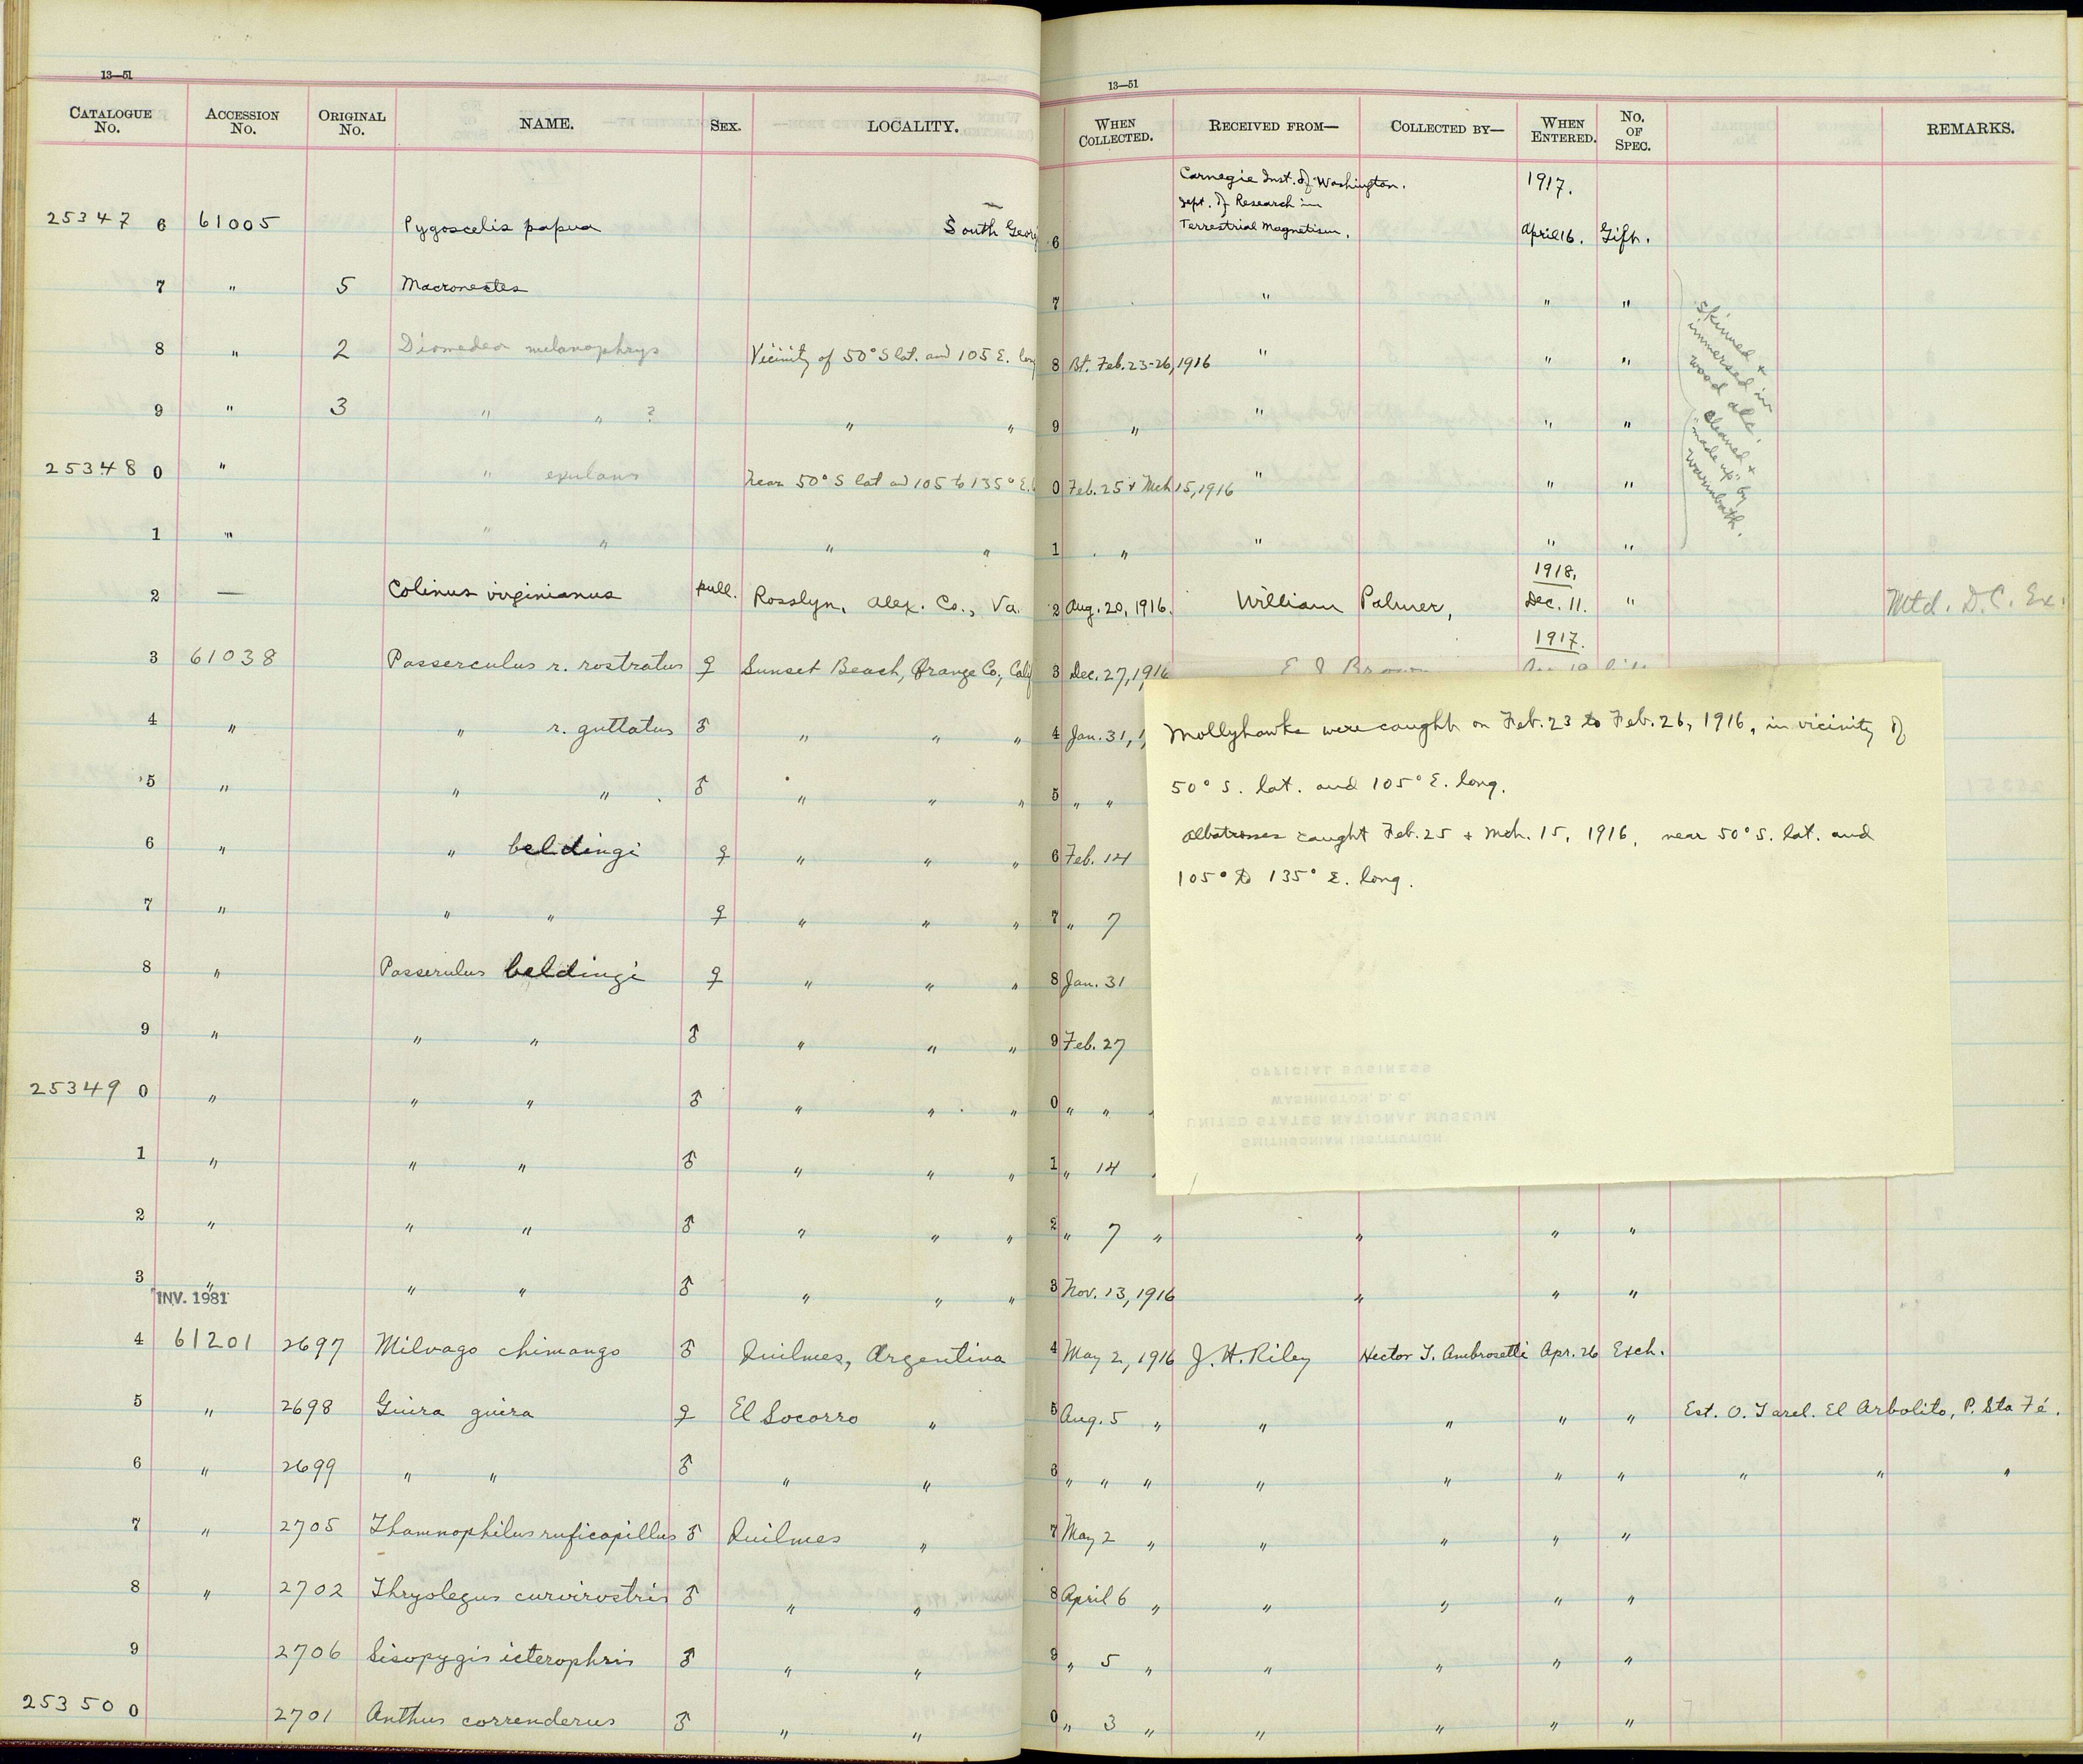 13—51
CATALOGUE No. ACCESSION No. ORIGINAL No. NAME. SEX. LOCALITY.
25347 6 61005 Pygoscelis papua South Georg
7 " 5 Macronectes
8 " 2 Diomedea melanophrys Vicinity of 50° S lat. and 105 E. long
9 " 3 " " ? " "
25348 0 " " exulans Near 50° S lat and 105 to 135° E.
1 " " " " "
2 — Colinus virginianus pull. Rosslyn, Alex. Co., Va.
3 61038 Passerculus r. rostratus ♀ Sunset Beach, Orange Co., Calif
4 " " r. guttatus ♂ " " "
5 " " " ♂ " " "
6 " " beldingi ♀ " " "
7 " " " ♀ " " "
8 " Passerulus beldingi ♀ " " "
9 " " " ♂ " " "
25349 0 " " " ♂ " " "
1 " " " ♂ " " "
2 " " " ♂ " " "
3 " " " ♂ " " "
INV. 1981
4 61201 2697 Milvago chimango ♂ Quilmes, Argentina
5 " 2698 Guira guira ♀ El Socorro "
6 " 2699 " " ♂ " "
7 " 2705 Thamnophilus ruficapillus ♂ Quilmes "
8 " 2702 Thryolegus curvirostris ♂ " "
9 2706 Sisopygis icterophris ♂ " "
25350 0 2701 Anthus correnderus ♂ " "
13—51
WHEN COLLECTED. RECEIVED FROM— COLLECTED BY— WHEN ENTERED. No. OF SPEC. REMARKS.
Carnegie Inst. of Washington. 1917.
Dept. of Research in
6 Terrestrial Magnetism. April 16. Gift.
7 " " "
8 Bt. Feb. 23-26, 1916 " " "
9 " " " "
0 Feb. 25 & Mch 15, 1916 " " "
1 " " " "
Skinned &
immersed in
wood alc.
Cleaned &
"made up" by
Warmbath.
1918.
2 Aug. 20, 1916. William Palmer, Dec. 11. " Mtd. D.C. Ex.
1917.
3 Dec. 27, 1916 E J Brown
4 Jan. 31, 1
5 " "
6 Feb. 14
7 " 7
8 Jan. 31
9 Feb. 27
0 " "
1 " 14
2 " 7 " " " "
3 Nov. 13, 1916 " " "
4 May 2, 1916 J. H. Riley Hector T. Ambrosetti Apr. 26 Exch.
5 Aug. 5 " " " " " Est. O. Tarel. El Arbolito, P. Sta Fé.
6 " " " " " " " " " "
7 May 2 " " " " "
8 April 6 " " " " "
9 " 5 " " " " "
0 " 3 " " " " "
Mollyhawks were caught on Feb. 23 to Feb. 26, 1916, in vicinity of
50° S. lat. and 105° E. long.
Albatrosses caught Feb. 25 & Mch. 15, 1916, near 50° S. lat. and
105° to 135° E. long.
OFFICIAL BUSINESS
WASHINGTON, D. C.
UNITED STATES NATIONAL MUSEUM
SMITHSONIAN INSTITUTION